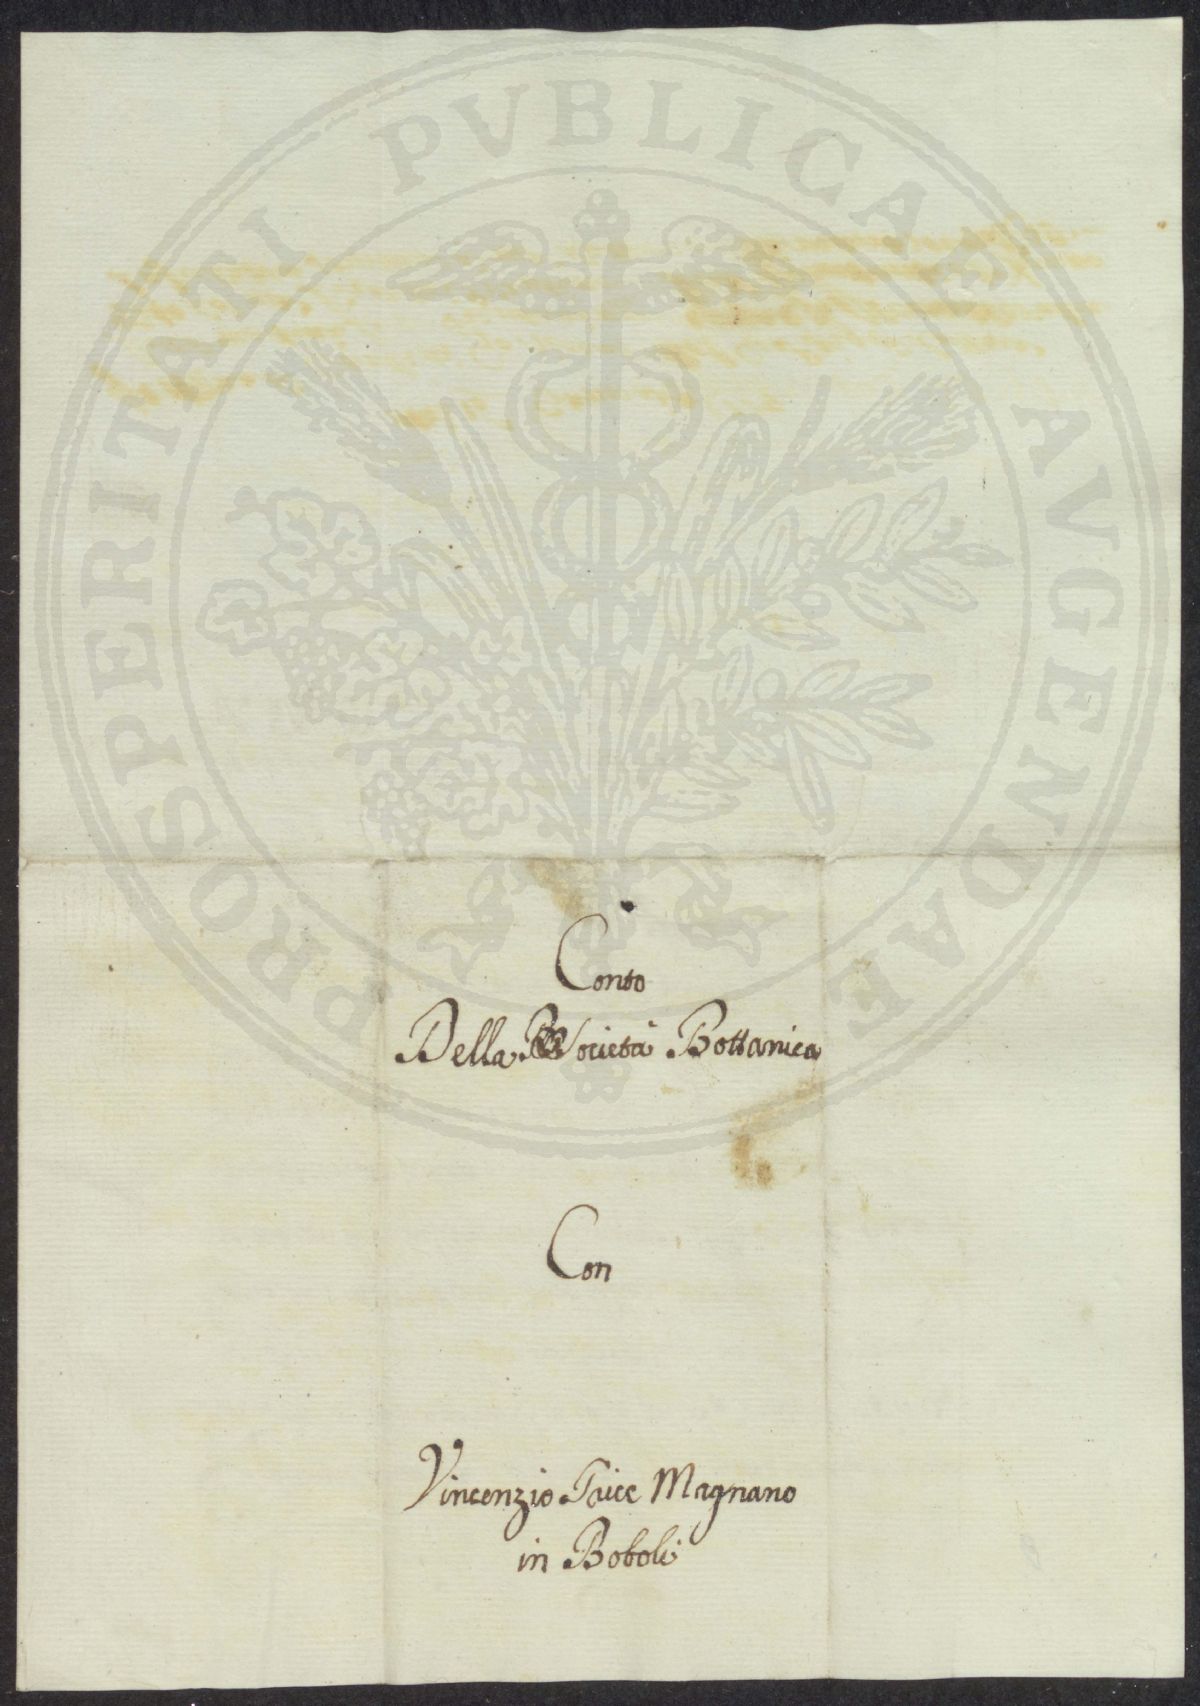 PROSPERITATI PVBLICAE AVGENDAE
Conto
Della Società Bottanica
Con
Vincenzio Magnano
in Boboli